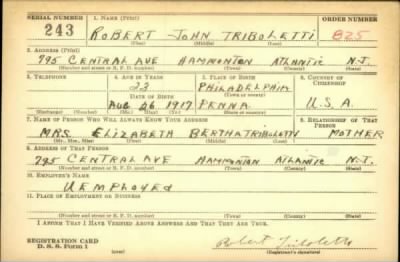 SERIAL NUMBER 1. NAME (Print) ORDER NUMBER
243 ROBERT JOHN TRIBOLETTI 825
(First) (Middle) (Last)
2. ADDRESS (Print)
795 CENTRAL AVE HAMMONTON ATLANTIC N.J.
(Number and street or R. F. D. number) (Town) (County) (State)
3. TELEPHONE 4. AGE IN YEARS 5. PLACE OF BIRTH 6. COUNTRY OF CITIZENSHIP
23 PHILADELPHIA
DATE OF BIRTH (Town or county)
AUG 26 1917 PENNA. U.S.A.
(Exchange) (Number) (Mo.) (Day) (Yr.) (State or country)
7. NAME OF PERSON WHO WILL ALWAYS KNOW YOUR ADDRESS 8. RELATIONSHIP OF THAT PERSON
MRS. ELIZABETH BERTHA TRIBOLETTI MOTHER
(Mr., Mrs., Miss) (First) (Middle) (Last)
9. ADDRESS OF THAT PERSON
795 CENTRAL AVE HAMMONTON ATLANTIC N.J.
(Number and street or R. F. D. number) (Town) (County) (State)
10. EMPLOYER'S NAME
UEMPLOYED
11. PLACE OF EMPLOYMENT OR BUSINESS
(Number and street or R. F. D. number) (Town) (County) (State)
I AFFIRM THAT I HAVE VERIFIED ABOVE ANSWERS AND THAT THEY ARE TRUE.
REGISTRATION CARD
D. S. S. Form 1 (over) Robert Triboletti
(Registrant's signature)